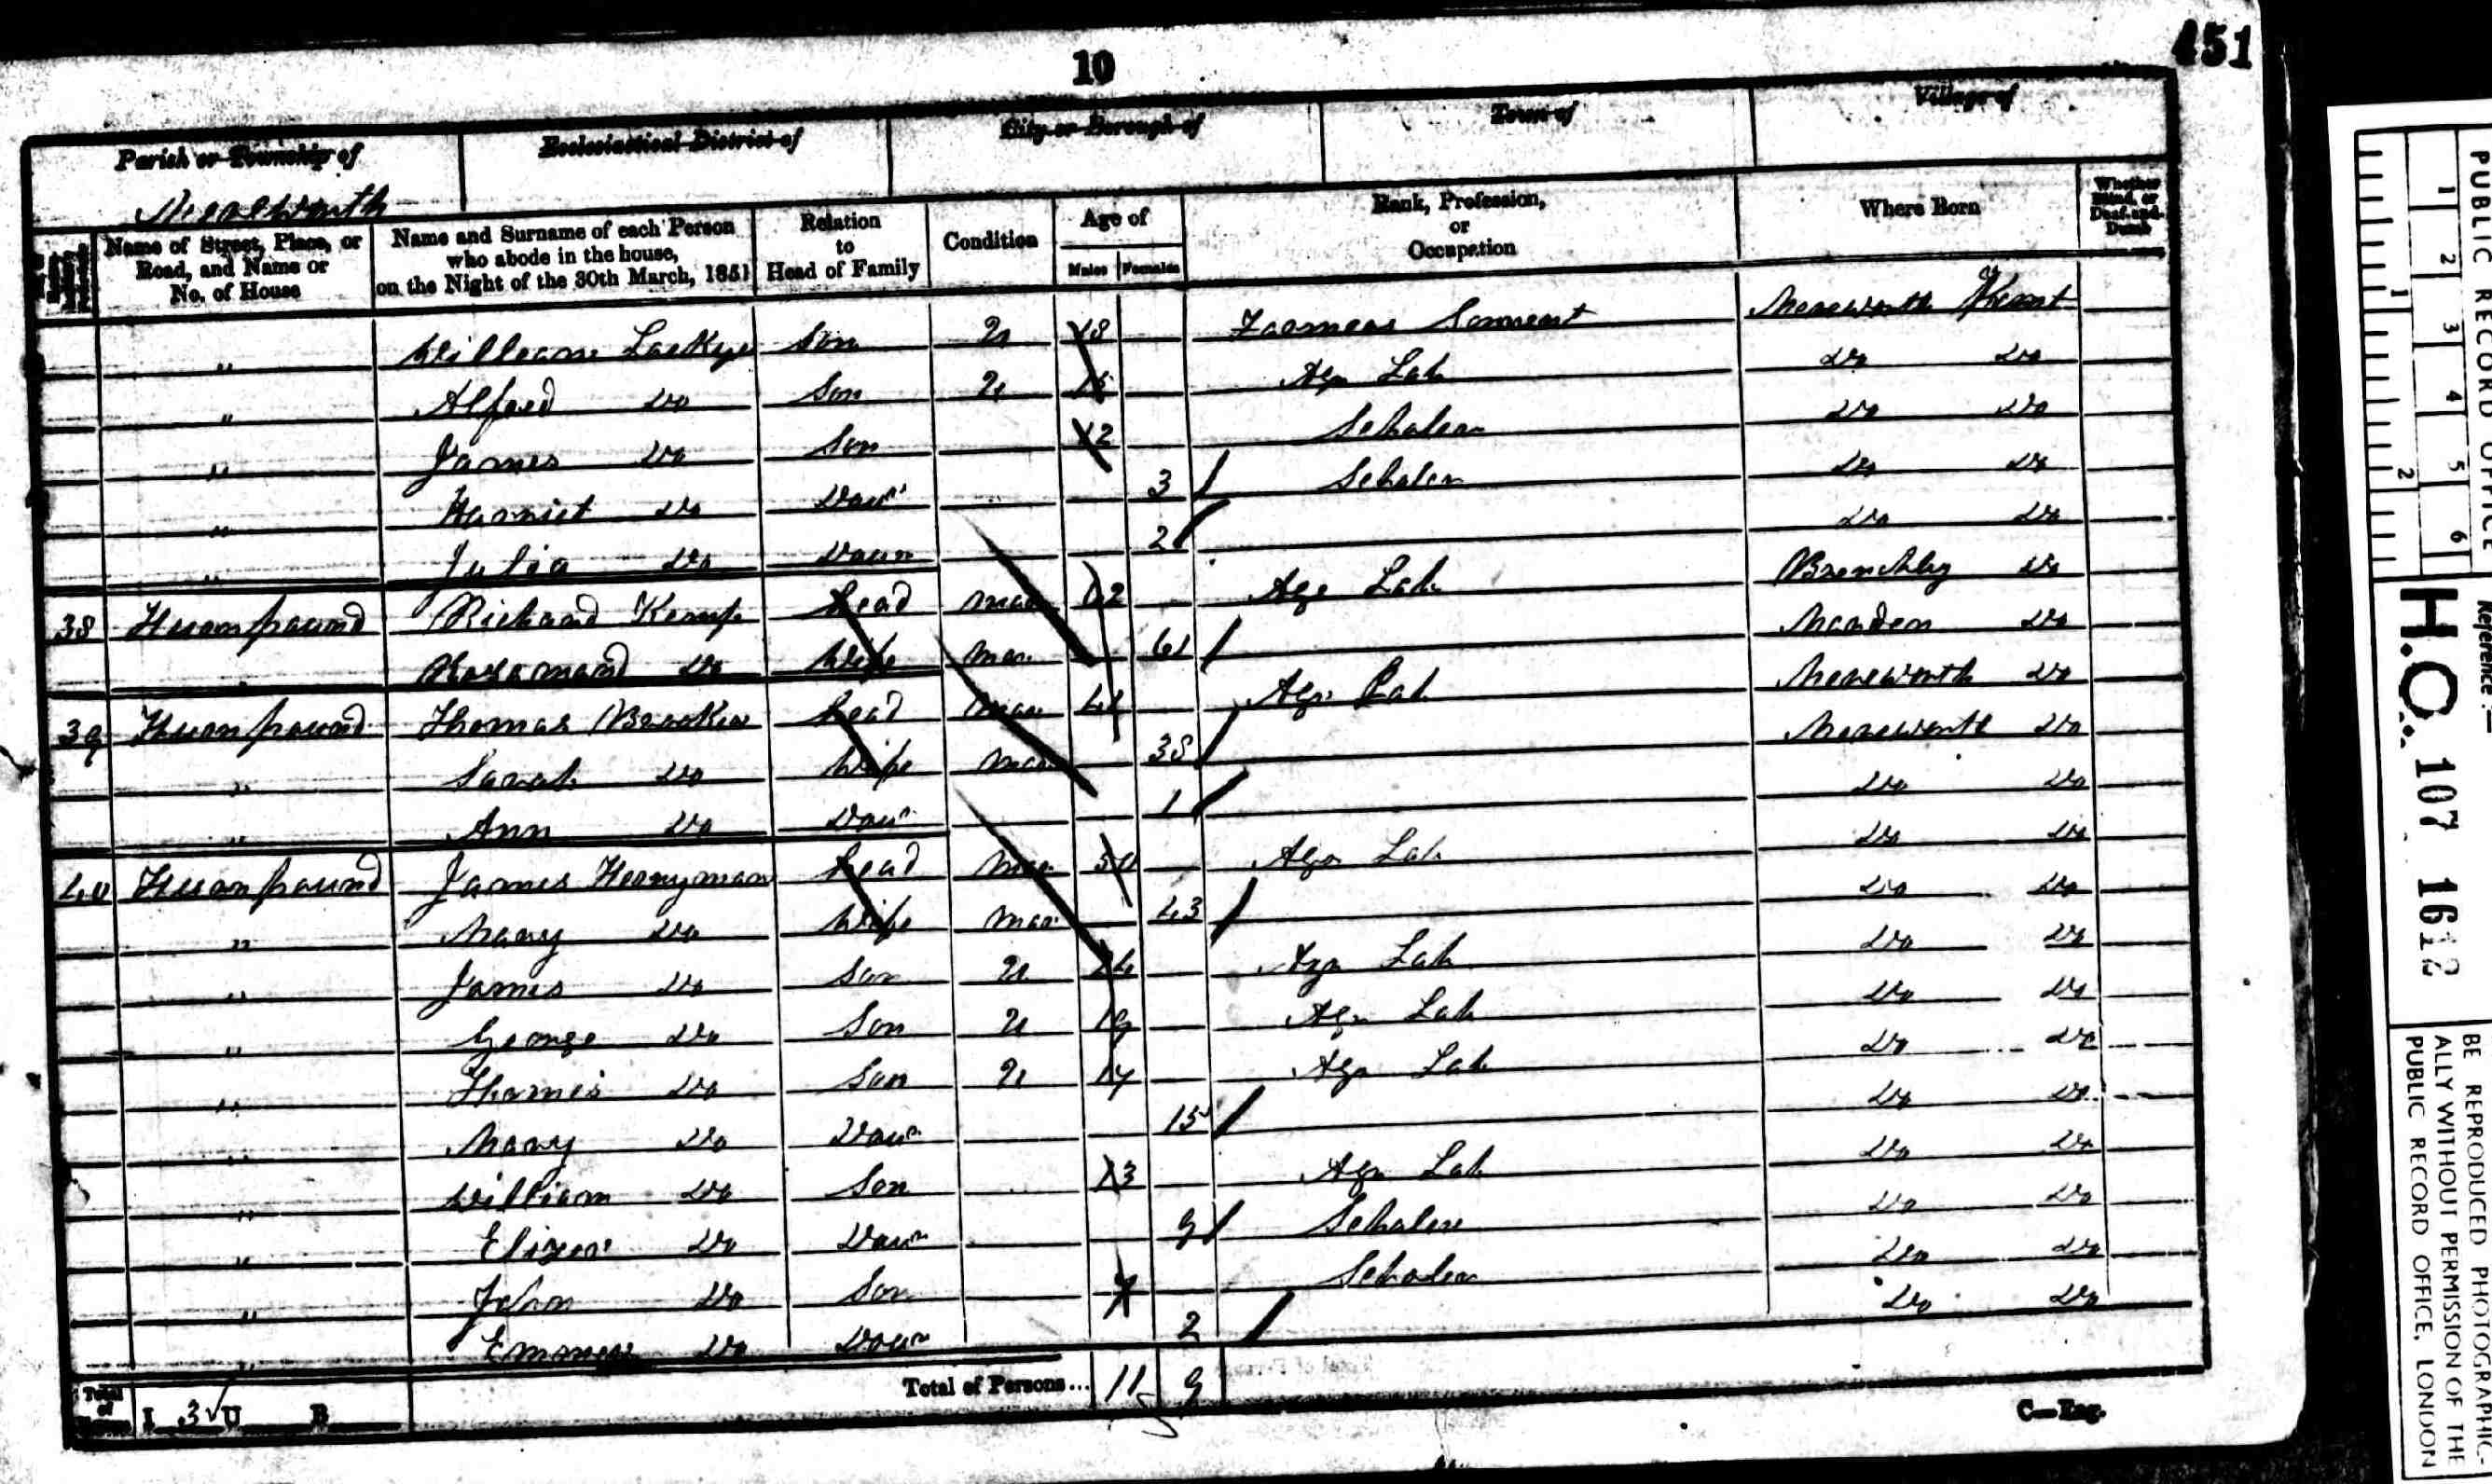 451
10
Parish or Township of
Ecclesiastical District of
City or Borough of
Town of
Village of
Mereworth
Name of Street, Place, or Road, and Name or No. of House
Name and Surname of each Person who abode in the house, on the Night of the 30th March, 1851
Relation to Head of Family
Condition
Age of
Males Females
Rank, Profession, or Occupation
Where Born
Whether Blind, or Deaf-and-Dumb
" William Son U 18 Farmers Servant Mereworth Kent
" Alfred Do Son U 15 Ag Lab Do Do
" James Do Son 12 Scholar Do Do
" Harriet Do Daur 3 Scholar Do Do
" Julia Do Daur 2 Do Do
38 Richard Kemp Head Mar 62 Ag Lab Brenchley Do
Rosamand Do Wife Mar 61 Marden Do
39 Thomas Brooker Head Mar Ag Lab Mereworth Do
" Sarah Do Wife Mar 38 Mereworth Do
" Ann Do Daur 1 Do Do
40 James Honyman Head Mar 50 Ag Lab Do Do
" Mary Do Wife Mar 43 Do Do
" James Do Son U 24 Ag Lab Do Do
" George Do Son U 19 Ag Lab Do Do
" Thomas Do Son U 17 Ag Lab Do Do
" Mary Do Daur 15 Do Do
" William Do Son 13 Ag Lab Do Do
" Eliza Do Daur 9 Scholar Do Do
" John Do Son 7 Scholar Do Do
" Emma Do Daur 2 Do Do
Total of Houses I 3 U B
Total of Persons... 11 9
C—Eng.
PUBLIC RECORD OFFICE
1 2 3 4 5 6
1 2
Reference:-
H.O. 107 1612
BE REPRODUCED PHOTOGRAPHIC-
ALLY WITHOUT PERMISSION OF THE
PUBLIC RECORD OFFICE, LONDON